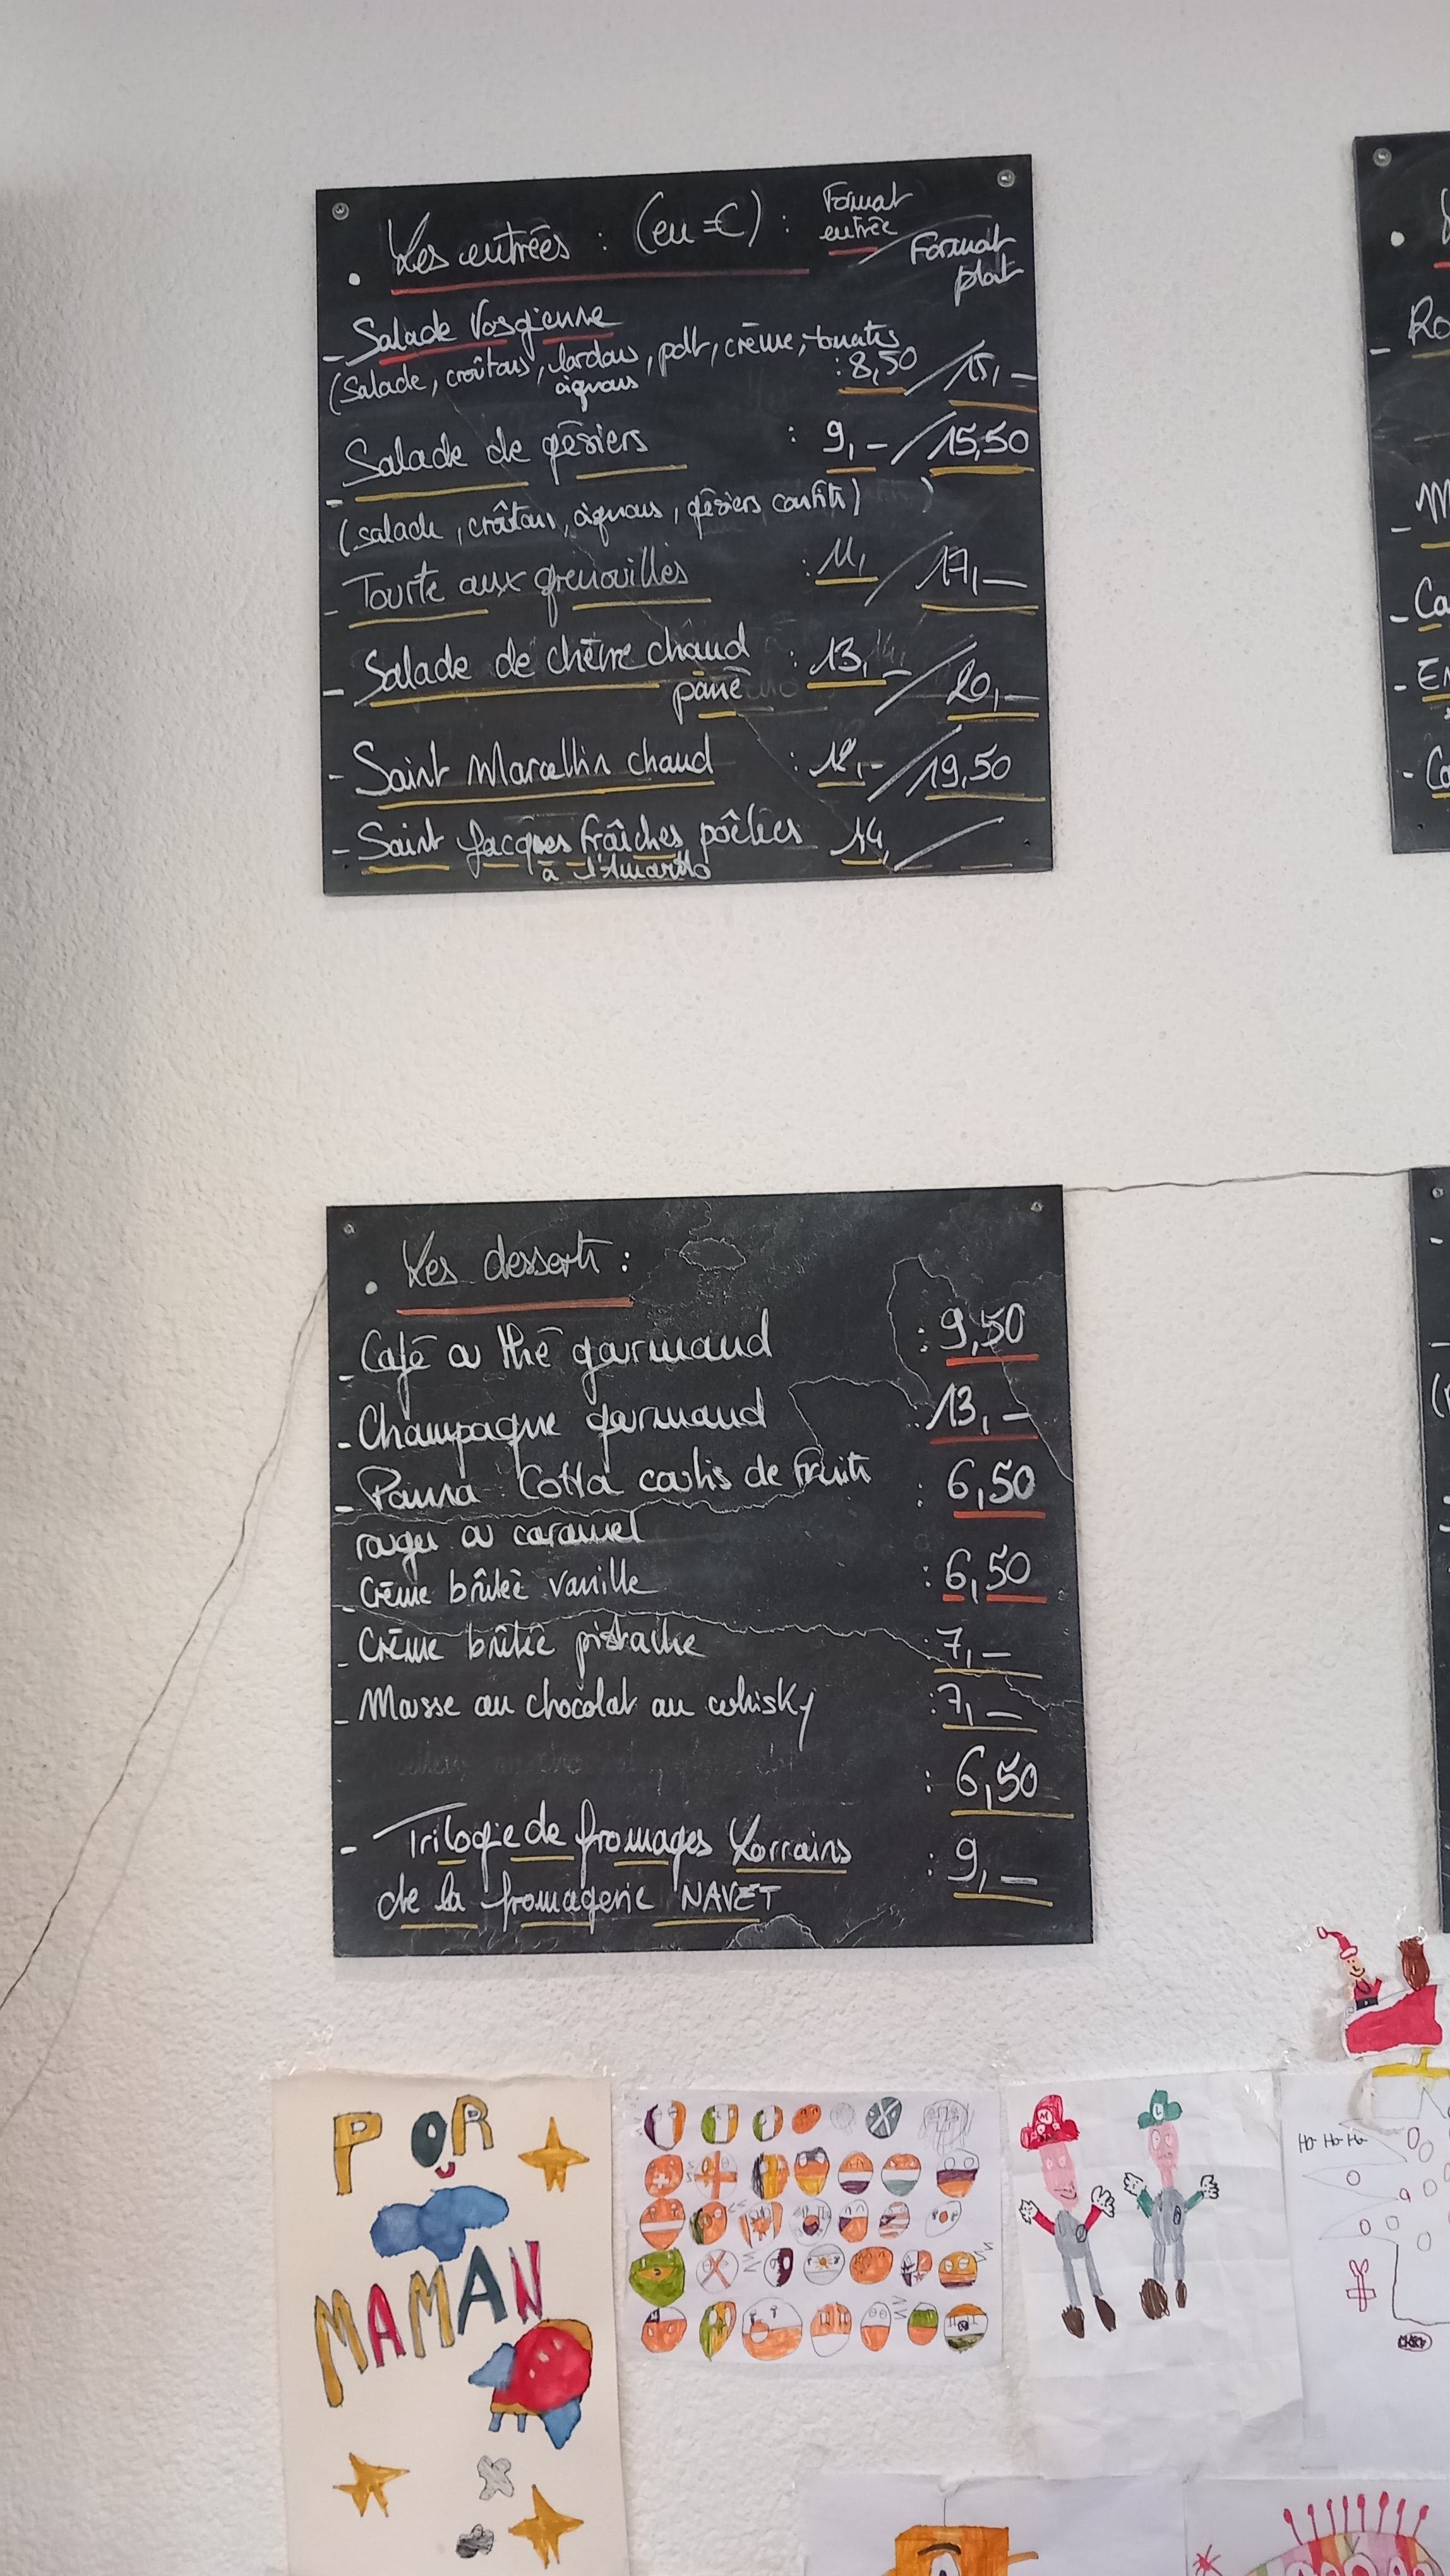 . Les entrées : (en €) : Format entrée / Format plat
- Salade Vosgienne
(Salade, croûtons, lardons, oignons, pdt, crème, tomates : 8,50 / 15,-
- Salade de gésiers : 9,- / 15,50
(salade, croûtons, oignons, gésiers confits)
- Tourte aux grenouilles : 11, / 17,-
- Salade de chèvre chaud : 13,- / 20,-
pané
- Saint Marcellin chaud : 12,- / 19,50
- Saint Jacques fraîches poêlées 14, /
à l'Amaretto
. Les desserts :
- Café ou thé gourmand : 9,50
- Champagne gourmand : 13,-
- Panna Cotta coulis de fruits : 6,50
rouges ou caramel
- Crème brûlée vanille : 6,50
- Crème brûlée pistache : 7,-
- Mousse au chocolat au whisky : 7,-
: 6,50
- Trilogie de fromages Lorrains : 9,-
de la fromagerie NAVET
Ro
- M
- Ca
- En
- Co
POR
MAMAN
M
L
HO HO HO